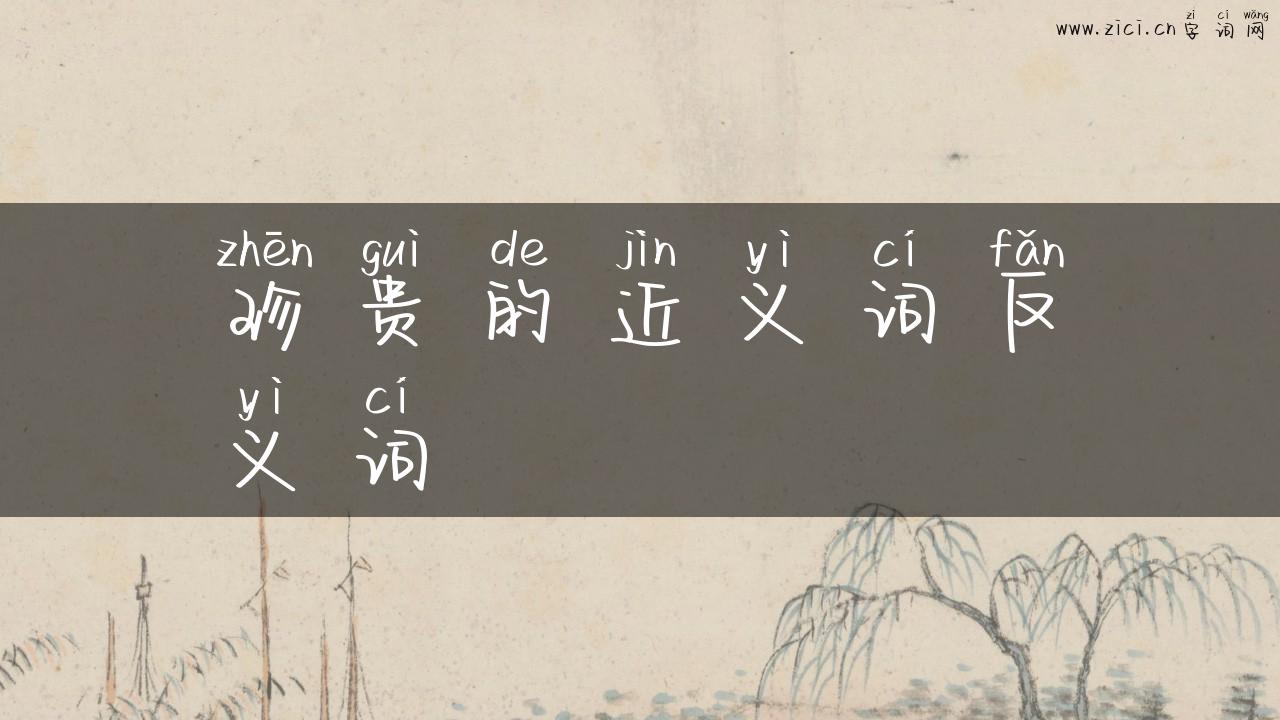 zì cí wǎng
www.zici.cn 字词网
zhēn guì de jìn yì cí fǎn
珍贵的近义词反
yì cí
义词